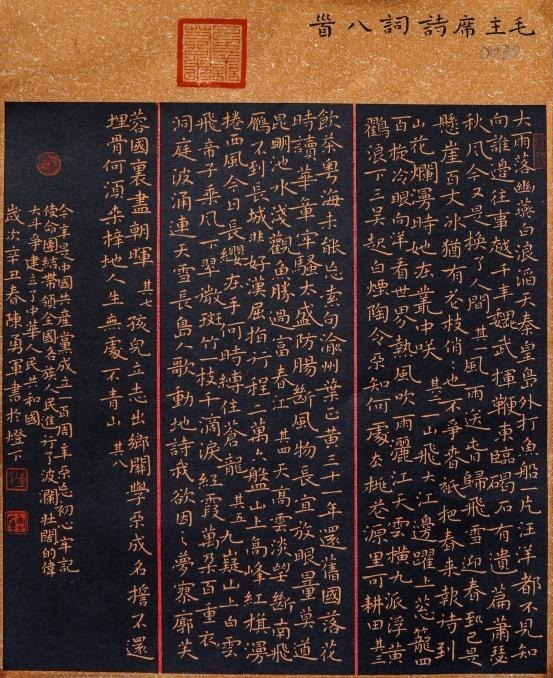 毛主席詩詞八首
大雨落幽燕白浪滔天秦皇島外打魚船片汪洋都不見知
向誰邊往事越千年魏武揮鞭東臨碣石有遺篇蕭瑟
秋風今又是換了人間 其一 風雨送春歸飛雪迎春到已是
懸崖百丈冰猶有花枝俏々也不爭春祇把春來報待到
山花爛漫時她在叢中咲 其二 一山飛大江邊躍上葱籠四
百旋冷眼向洋看世界熱風吹雨灑江天雲橫九派浮黃
鸖浪下三吳起白煙陶令不知何處去桃花源里可耕田 其三
飲茶粵海未能忘索句渝州葉正黃三十一年還舊國落花
時讀華章牢騷太盛防腸斷風物長宜放眼量莫道
昆明池水淺觀魚勝過富春江 其四 天高雲淡望斷南飛
鴈不到長城非好漢屈指行程二萬六盤山上高峰紅旗漫
捲西風今日長纓在手何時縛住蒼龍 其五 九嶷山上白雲
飛帝子乘風下翠微斑竹一枝千滴淚紅霞萬朵百重衣
洞庭波涌連天雪長島人歌動地詩我欲因之夢寥廓芙
蓉國裏盡朝暉 其七 孩兒立志出鄉關學不成名誓不還
埋骨何須桑梓地人生無處不青山 其八
今年是中國共產黨成立一百周年不忘初心牢記
使命團結帶領全國各族人民進行了波瀾壯闊的偉
大斗爭建立了中華人民共和國
歲次辛丑春陳勇軍書於燈下